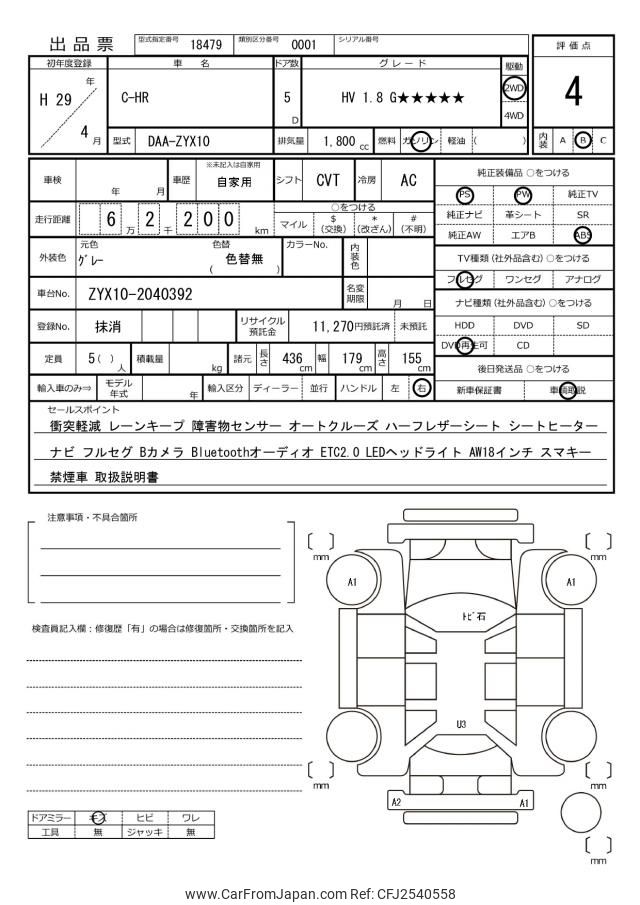 出品票 型式指定番号 18479 類別区分番号 0001 シリアル番号
評価点
初年度登録 車名 ドア数 グレード 駆動
H 29 年 C-HR 5 D HV 1.8 G★★★★★ 2WD 4
4WD
4 月 型式 DAA-ZYX10 排気量 1,800 cc 燃料 ガソリン 軽油 ( ) 内装 A B C
車検 年 月 車歴 ※未記入は自家用 自家用 シフト CVT 冷房 AC 純正装備品 ○をつける
PS PW 純正TV
走行距離 6 万 2 千 2 0 0 km ○をつける 純正ナビ 革シート SR
マイル $ (交換) * (改ざん) # (不明) 純正AW エアB ABS
外装色 元色 グレー 色替 ( 色替無 ) カラーNo. 内装色 TV種類 (社外品含む) ○をつける
フルセグ ワンセグ アナログ
車台No. ZYX10-2040392 名変期限 月 日 ナビ種類 (社外品含む) ○をつける
登録No. 抹消 リサイクル預託金 11,270円預託済 未預託 HDD DVD SD
DVD再生可 CD
定員 5 ( ) 人 積載量 kg 諸元 長さ 436 cm 幅 179 cm 高さ 155 cm 後日発送品 ○をつける
輸入車のみ⇒ モデル年式 年 輸入区分 ディーラー 並行 ハンドル 左 右 新車保証書 車輌取説
セールスポイント
衝突軽減 レーンキープ 障害物センサー オートクルーズ ハーフレザーシート シートヒーター
ナビ フルセグ Bカメラ Bluetoothオーディオ ETC2.0 LEDヘッドライト AW18インチ スマキー
禁煙車 取扱説明書
注意事項・不具合箇所
mm mm
A1 A1
トビ石
検査員記入欄:修復歴「有」の場合は修復箇所・交換箇所を記入
U3
mm mm
A2 A1
ドアミラー キズ ヒビ ワレ
工具 無 ジャッキ 無
mm
www.CarFromJapan.com Ref: CFJ2540558